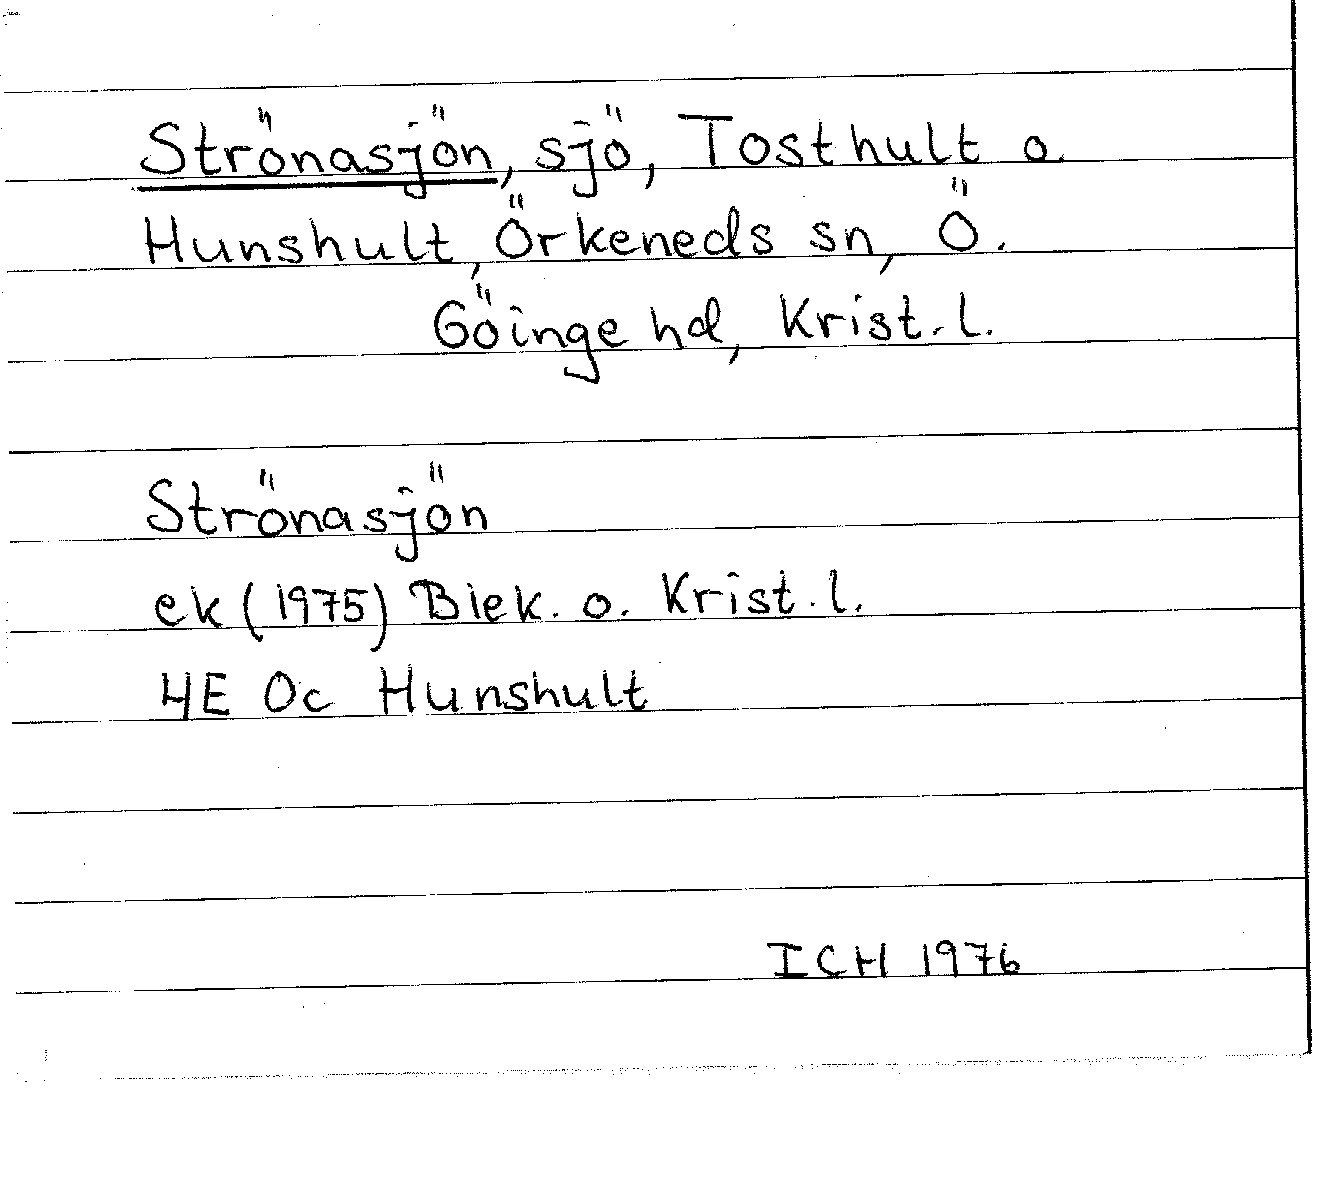 Strönasjön, sjö, Tosthult o.
Hunshult, Örkeneds sn, Ö.
Göinge hd, Krist. l.
Strönasjön
ek (1975) Blek. o. Krist. l.
4E Oc Hunshult
ICH 1976